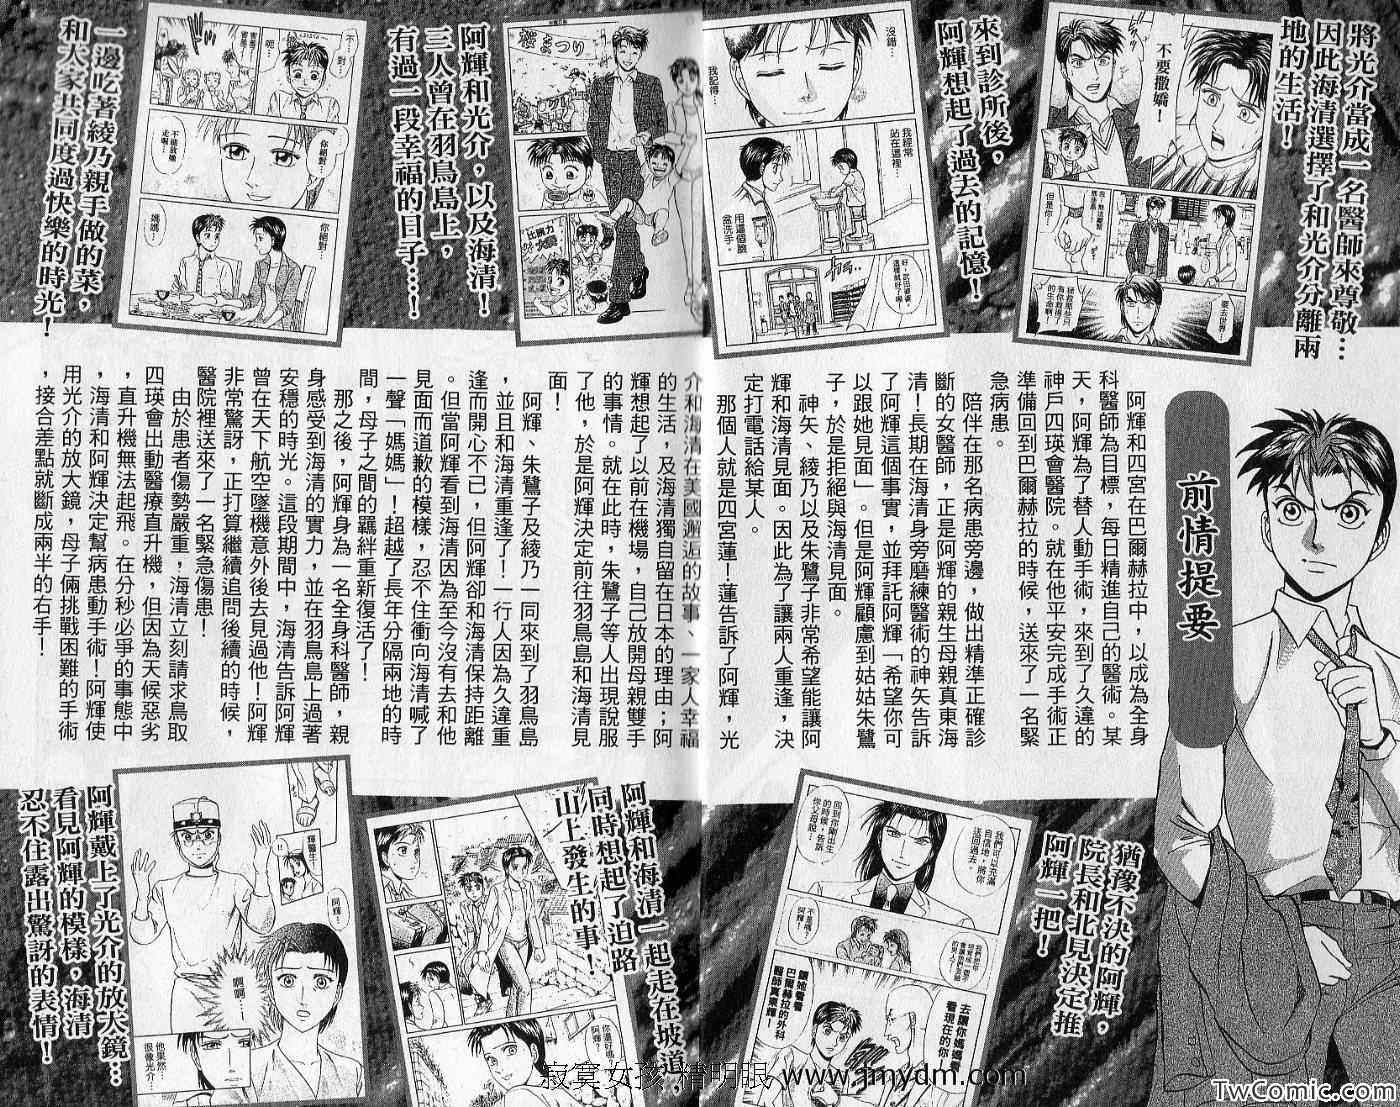 前情提要
阿輝和四宮在巴爾赫拉中，以成為全身
科醫師為目標，每日精進自己的醫術。某
天，阿輝為了替人動手術，來到了久違的
神戶四瑛會醫院。就在他平安完成手術正
準備回到巴爾赫拉的時候，送來了一名緊
急病患。
陪伴在那名病患旁邊，做出精準正確診
斷的女醫師，正是阿輝的親生母親真東海
清！長期在海清身旁磨練醫術的神矢告訴
了阿輝這個事實，並拜託阿輝「希望你可
以跟她見面」。但是阿輝顧慮到姑姑朱鷺
子，於是拒絕與海清見面。
神矢、綾乃以及朱鷺子非常希望能讓阿
輝和海清見面。因此為了讓兩人重逢，決
定打電話給某人。
那個人就是四宮蓮！蓮告訴了阿輝，光
介和海清在美國邂逅的故事、一家人幸福
的生活，及海清獨自留在日本的理由；阿
輝想起了以前在機場，自己放開母親雙手
的事情。就在此時，朱鷺子等人出現說服
了他，於是阿輝決定前往羽鳥島和海清見
面！
阿輝、朱鷺子及綾乃一同來到了羽鳥島
，並且和海清重逢了！一行人因為久違重
逢而開心不已，但阿輝卻和海清保持距離
。但當阿輝看到海清因為至今沒有去和他
見面而道歉的模樣，忍不住衝向海清喊了
一聲「媽媽」！超越了長年分隔兩地的時
間，母子之間的羈絆重新復活了！
那之後，阿輝身為一名全身科醫師，親
身感受到海清的實力，並在羽鳥島上過著
安穩的時光。這段期間中，海清告訴阿輝
曾在天下航空墜機意外後去見過他！阿輝
非常驚訝，正打算繼續追問後續的時候，
醫院裡送來了一名緊急傷患！
由於患者傷勢嚴重，海清立刻請求鳥取
四瑛會出動醫療直升機，但因為天候惡劣
，直升機無法起飛。在分秒必爭的事態中
，海清和阿輝決定幫病患動手術！阿輝使
用光介的放大鏡，母子倆挑戰困難的手術
，接合差點就斷成兩半的右手！
將光介當成一名醫師來尊敬…
因此海清選擇了和光介分離兩
地的生活！
不要撒嬌！
但是你…
要去世界…
拯救那些只
有你救得了
的生命啊！
來到診所後，
阿輝想起了過去的記憶！
沒錯…
我記得…
我經常
站在這裡…
用這個臉
盆洗手。
阿輝和光介，以及海清！
三人曾在羽鳥島上，
有過一段幸福的日子…！
桜まつり
比腕力
大賽
一邊吃著綾乃親手做的菜，
和大家共同度過快樂的時光！
不…
對…
呃…
你絕對…
不能放她
走喔…
你絕對…
媽媽…
猶豫不決的阿輝，
院長和北見決定推
阿輝一把！
我們可以充滿
自信地，將你
送回過去
回到你剛出生
的時候，告訴
你父母說…
不是嗎？
阿輝！
去讓你媽媽看
看現在的你
讓她看看
巴爾赫拉的外科
醫師真東輝！
阿輝和海清一起走在坡道，
同時想起了迫路
山上發生的事！
你還好嗎？
阿輝！
阿輝戴上了光介的放大鏡…
看見阿輝的模樣，海清
忍不住露出驚訝的表情！
輝醫生！
阿輝…
啊啊…
他果然…
很像光介…
寂寞女孩 精明眼 www.jmydm.com
TwComic.com